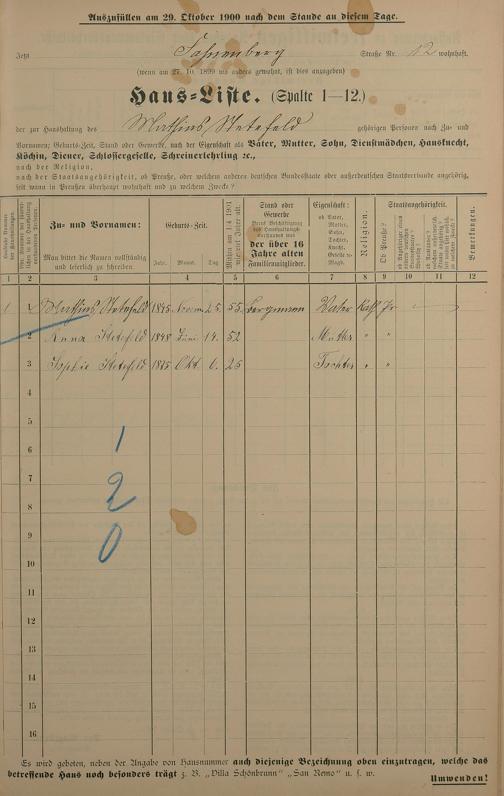 Auszufüllen am 29. Oktober 1900 nach dem Stande an diesem Tage.
Jetzt Straße Nr. 12 wohnhaft.
(wenn am 27. 10. 1899 wo anders gewohnt, ist dies anzugeben)
Haus-Liste. (Spalte 1—12.)
der zur Haushaltung des Mathias Stetefeld gehörigen Personen nach Zu- und
Vornamen; Geburts-Zeit, Stand oder Gewerbe, nach der Eigenschaft als Vater, Mutter, Sohn, Dienstmädchen, Hausknecht,
Köchin, Diener, Schlossergeselle, Schreinerlehrling ꝛc.,
nach der Religion,
nach der Staatsangehörigkeit, ob Preuße, oder welchem anderen deutschen Bundesstaate oder außerdeutschen Staatsverbande angehörig,
seit wann in Preußen überhaupt wohnhaft und zu welchem Zwecke?
Zu- und Vornamen:
Man bittet die Namen vollständig
und leserlich zu schreiben
Geburts-Zeit.
Jahr. Monat. Tag.
Stand oder
Gewerbe
der über 16
Jahre alten
Familienmitglieder.
Eigenschaft:
ob Vater,
Mutter,
Sohn,
Tochter,
Knecht,
Geselle od.
Magd.
Religion.
Staatsangehörigkeit.
Ob Preuße?
Bemerkungen.
1 2 3 4 5 6 7 8 9 10 11 12
1 1 Mathias Stetefeld 1845 Novem 25. 55. Bergmann Vater Kath Pr
2 Anna Stetefeld 1848 Juni 14. 52 Mutter " "
3 Sophie Stetefeld 1875 Okt. 6. 25 Tochter " "
4
5
6
7
8
9
10
11
12
13
14
15
16
1
2
0
Es wird gebeten, neben der Angabe von Hausnummer auch diejenige Bezeichnung oben einzutragen, welche das
betreffende Haus noch besonders trägt z. B. „Villa Schönbrunn" „San Remo" u. s. w.
Umwenden!